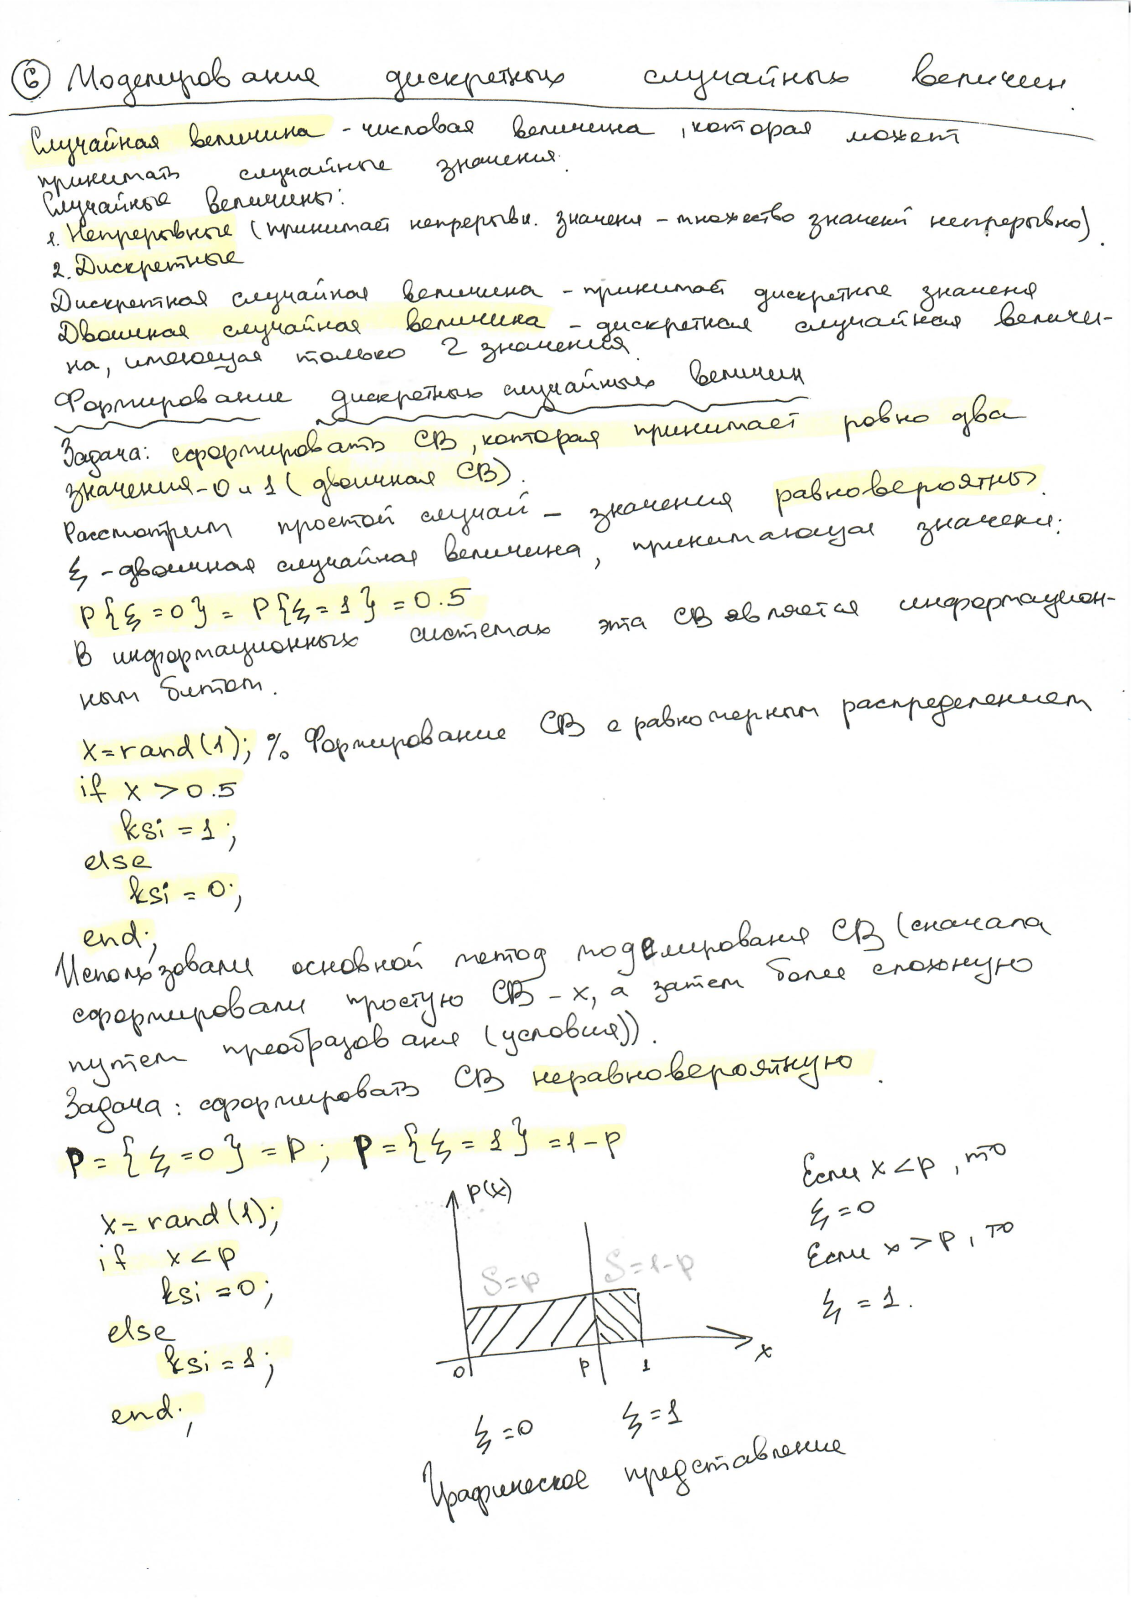 6 Моделирование дискретных случайных величин.
Случайная величина - числовая величина, которая может
принимать случайные значения.
Случайные величины:
1. Непрерывные (принимает непрерывн. значения - множество значений непрерывно).
2. Дискретные
Дискретная случайная величина - принимает дискретные значения
Двоичная случайная величина - дискретная случайная величи-
на, имеющая только 2 значения.
Формирование дискретных случайных величин
Задача: сформировать СВ, которая принимает ровно два
значения - 0 и 1 (двоичная СВ).
Рассмотрим простой случай - значения равновероятны.
ξ - двоичная случайная величина, принимающая значения:
P{ξ=0} = P{ξ=1} = 0.5
В информационных системах эта СВ является информацион-
ным битом.
x=rand(1); % Формирование СВ с равномерным распределением
if x > 0.5
ksi = 1;
else
ksi = 0;
end;
Использовали основной метод моделирования СВ (сначала
сформировали простую СВ - x, а затем более сложную
путем преобразования (условия)).
Задача: сформировать СВ неравновероятную.
P = {ξ=0} = p; P = {ξ=1} = 1-p
x=rand(1);
if x < p
ksi = 0;
else
ksi = 1;
end;
p(x)
S=p S=1-p
0 p 1 x
ξ=0 ξ=1
Графическое представление
Если x < p, то
ξ = 0
Если x > p, то
ξ = 1.